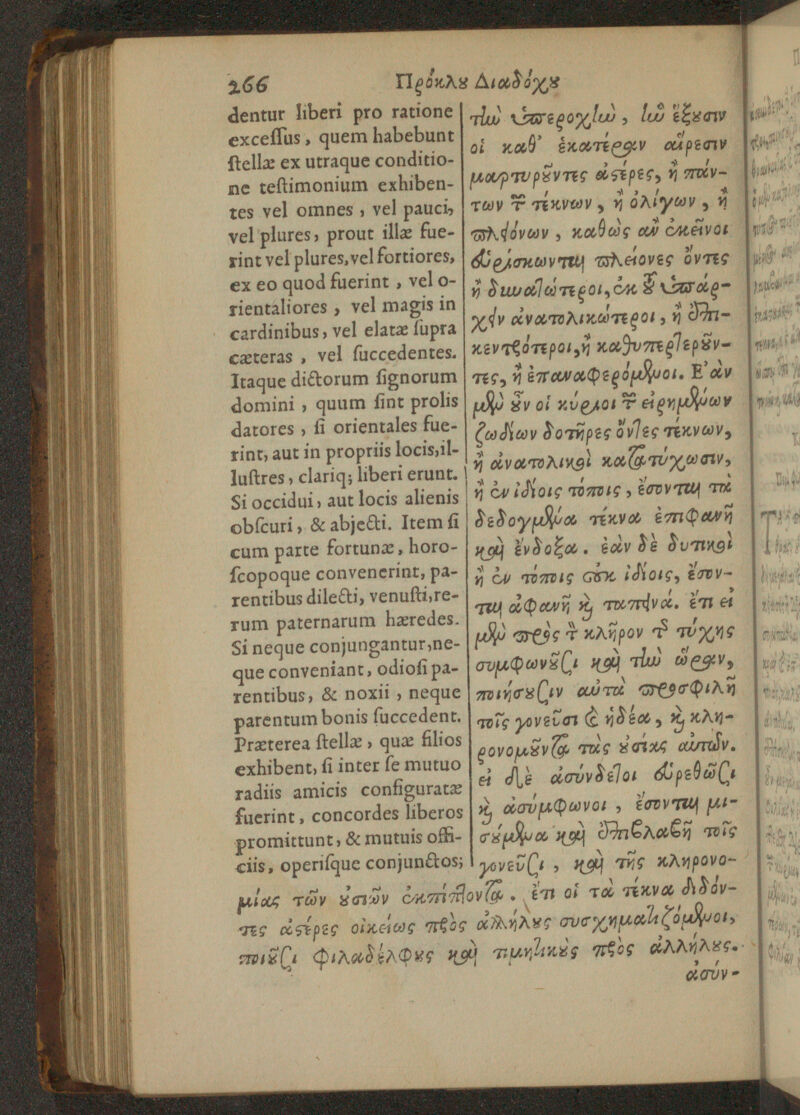 266
Πρόκλȣ Διαδόχȣ
dentur liberi pro ratione
excessus, quem habebunt
stellæ ex utraque conditio-
ne testimonium exhiben-
tes vel omnes, vel pauci,
vel plures, prout illæ fue-
rint vel plures, vel fortiores,
ex eo quod fuerint, vel o-
rientaliores, vel magis in
cardinibus, vel elatæ supra
cæteras, vel succedentes.
Itaque dictorum signorum
domini, quum sint prolis
datores, si orientales fue-
rint, aut in propriis locis, il-
lustres, clariq; liberi erunt.
Si occidui, aut locis alienis
obscuri, & abjecti. Item si
cum parte fortunæ, horo-
scopoque convenerint, pa-
rentibus dilecti, venusti, re-
rum paternarum hæredes.
Si neque conjungantur, ne-
que conveniant, odiosi pa-
rentibus, & noxii, neque
parentum bonis succedent.
Præterea stellæ, quæ filios
exhibent, si inter se mutuo
radiis amicis configuratæ
fuerint, concordes liberos
promittunt, & mutuis offi-
ciis, operisque conjunctos;
τὴν ὑπεροχὴν, ἣν ἕξȣσιν
οἱ καθ' ἑκατέραν αἵρεσιν
μαρτυρȣ͂ντες ἀϛέρες, ἢ πάν-
των τ τέκνων, ἢ ὀλίγων, ἢ
πλειόνων, καθὼς ἂν ἐκεῖνοι
εὑρίσκωνται πλείονες ὄντες
ἢ δυνατώτεροι, ἐκ τȣ͂ ὑπάρ-
χειν ἀνατολικώτεροι, ἢ ἐπι-
κεντρότεροι, ἢ καθυπερτερȣ͂ν-
τες, ἢ ἐπαναφερόμενοι. Ἐὰν
μὲν ȣ̓͂ν οἱ κύριοι τ εἰρημένων
ζωδίων δοτῆρες ὄντες τέκνων,
ἢ ἀνατολικοὶ κατατύχωσιν,
ἢ ἐν ἰδίοις τόποις, ἔσονται τὰ
δεδογμένα τέκνα ἐπιφανῆ
καὶ ἔνδοξα. ἐὰν δὲ δυτικοὶ
ἢ ἐν τόποις ȣ̓κ ἰδίοις, ἔσον-
ται ἀφανῆ ϗ ταπεινά. ἔτι εἰ
μὲν πρὸς τ κλῆρον τ τύχης
συμφωνȣ͂σι καὶ τὴν ὥραν,
ποιήσȣσιν αὐτὰ προσφιλῆ
τοῖς γονεῦσι ϗ ἡδέα, ϗ κλη-
ρονομȣ͂ντα τὰς ȣ̓σίας αὐτῶν.
εἰ δὲ ἀσύνδετοι εὑρεθῶσι
ϗ ἀσύμφωνοι, ἔσονται μι-
σȣ́μενα καὶ ἐπιβλαβῆ τοῖς
γονεῦσι, καὶ τῆς κληρονο-
μίας τῶν ȣ̓σιῶν ἐκπίπτοντα. ἔτι οἱ τὰ τέκνα διδόν-
τες ἀϛέρες οἰκείως πρὸς ἀλλήλȣς συσχηματιζόμενοι,
ποιȣ͂σι φιλαδέλφȣς καὶ τιμητικȣ̀ς πρὸς ἀλλήλȣς.
ἀσύν-